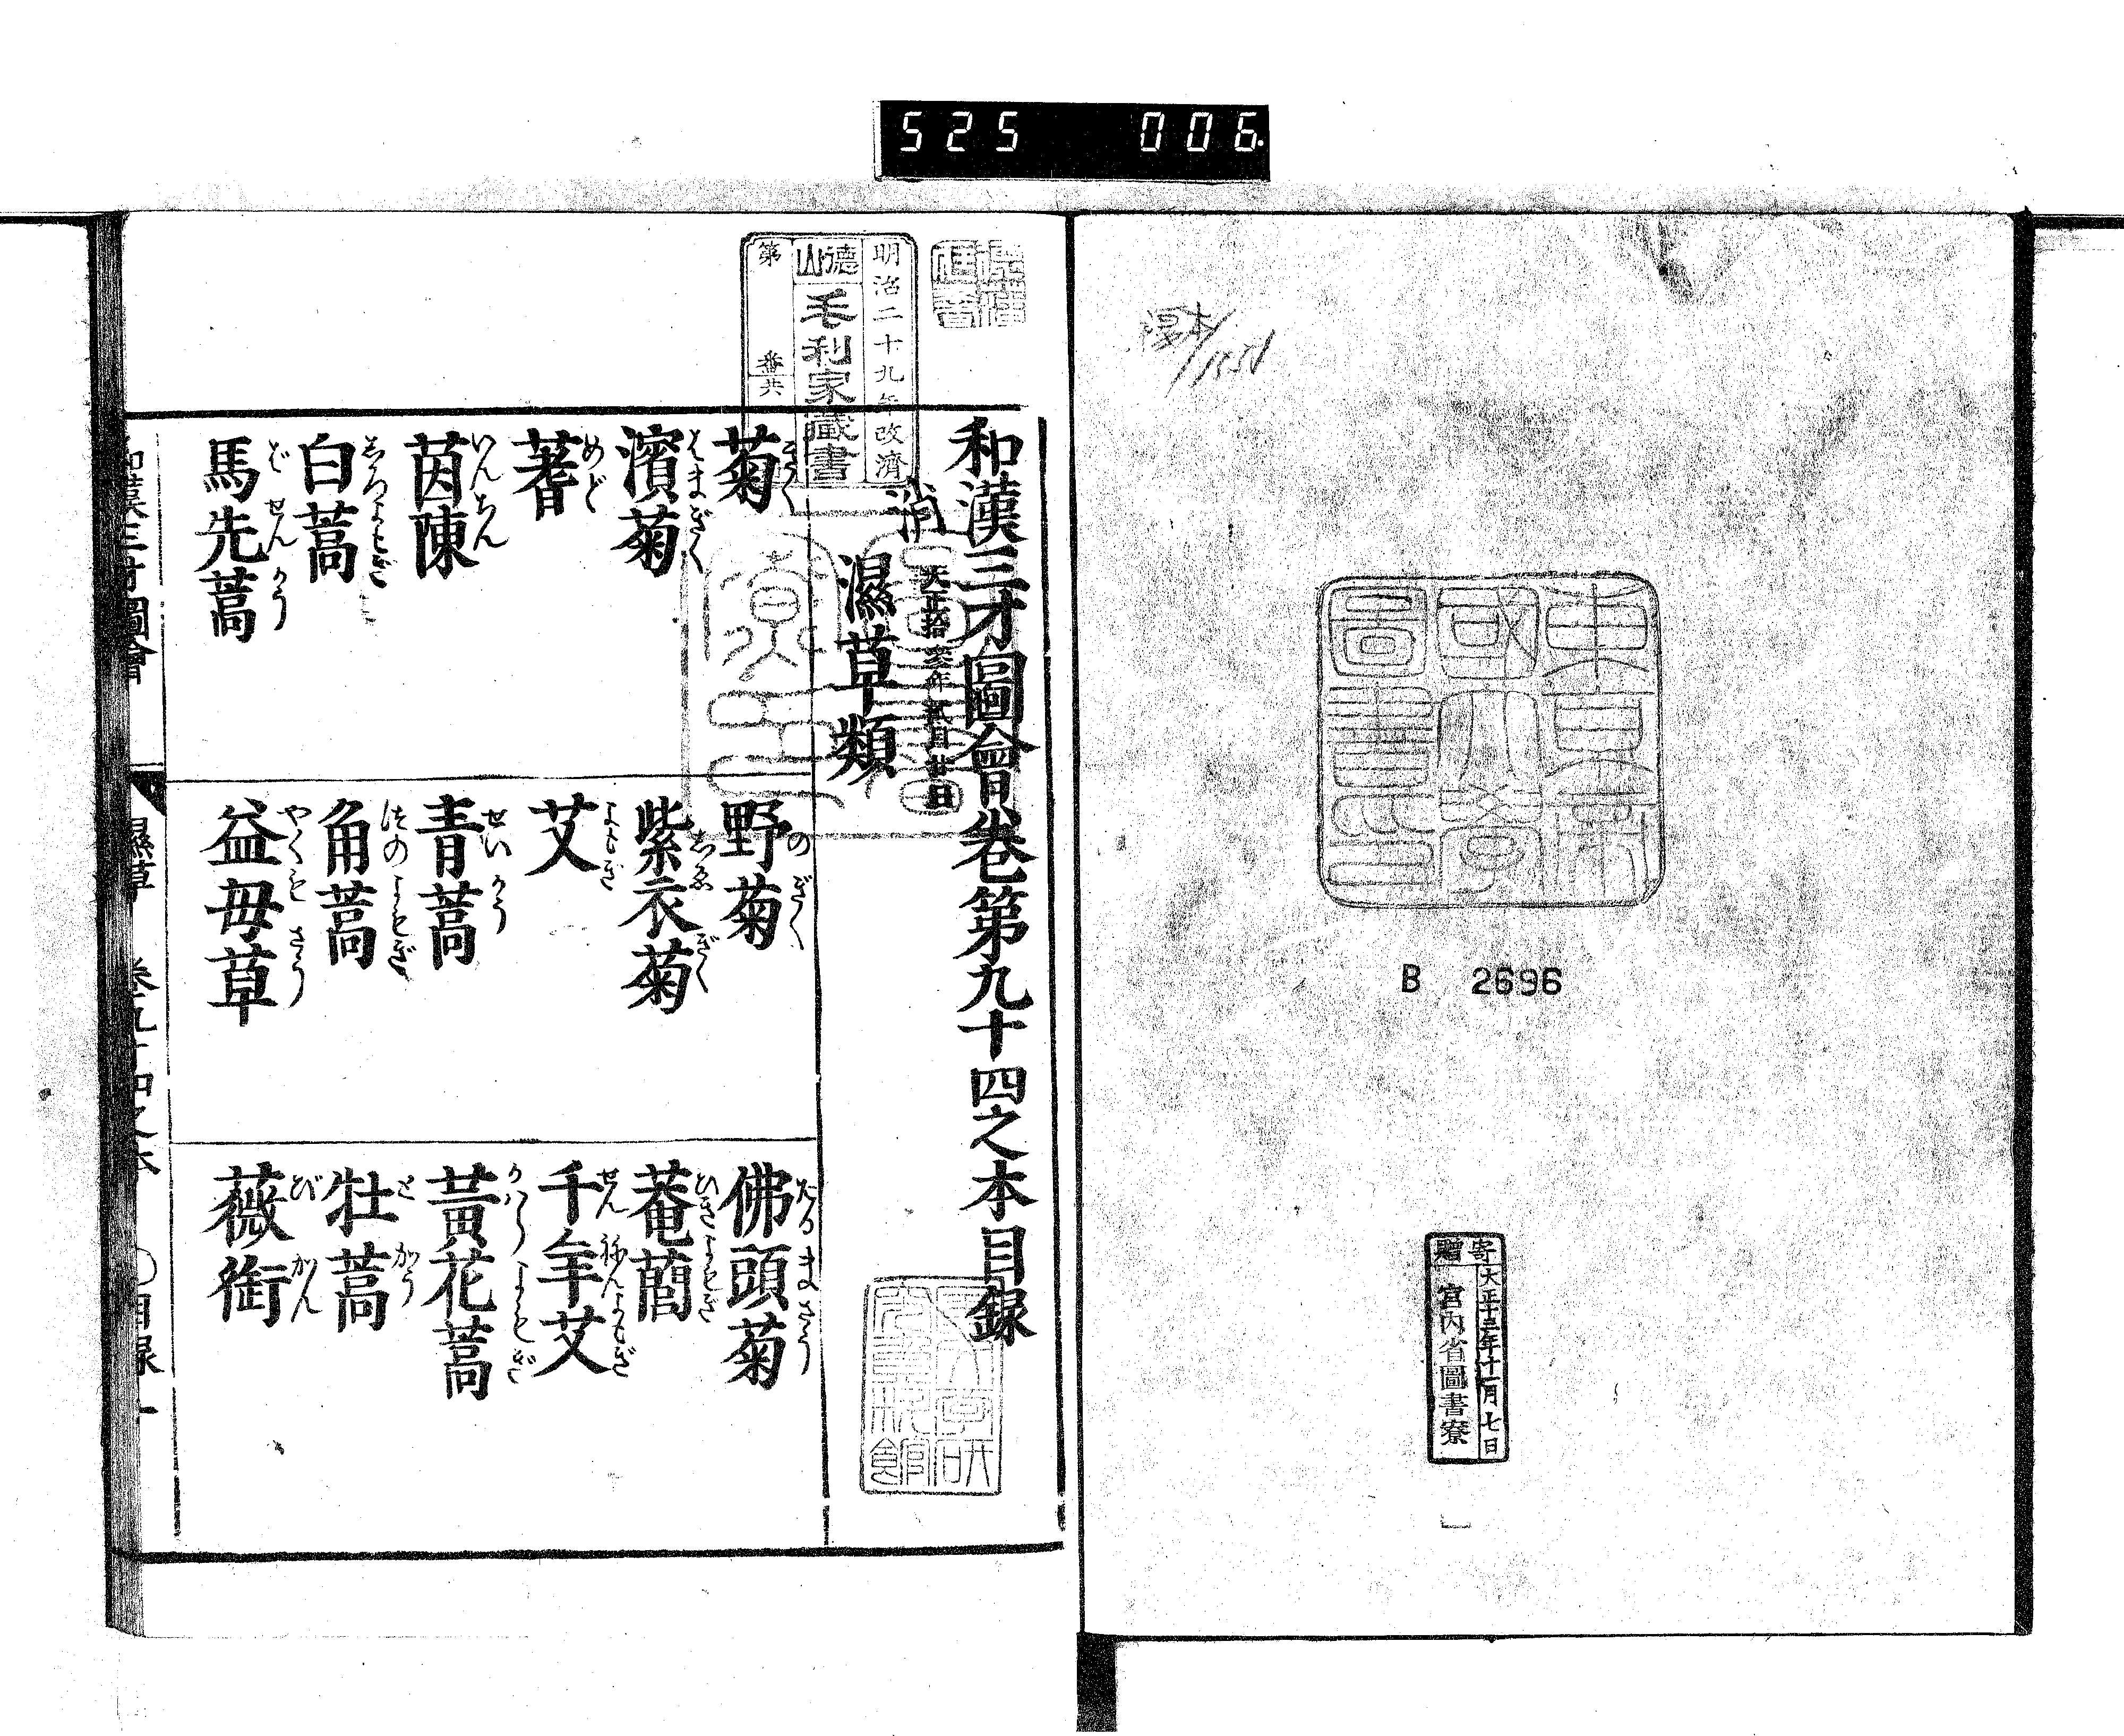 525 006.
B 2696
寄贈
大正十三年十一月七日
宮内省圖書寮
東京帝國大學圖書印
明治二十九年改濟
德山
毛利家藏書
第 番共
消
和漢三才圖會卷第九十四之本目録
濕草類
菊 きく
野菊 のぎく
佛頭菊 たるまさう
濱菊 はまぎく
紫衣菊 しゑぎく
菴䕡 ひきよもぎ
蓍 めど
艾 よもぎ
千年艾 せんねんよもぎ
茵陳 いんちん
青蒿 せいかう
黃花蒿 かはらよもぎ
白蒿 しろよもぎ
角蒿 つのよもぎ
牡蒿 とかう
馬先蒿 ばせんかう
益母草 やくもさう
薇銜 びかん
和漢三才圖會 濕草 卷九十四之本 ○目録 一